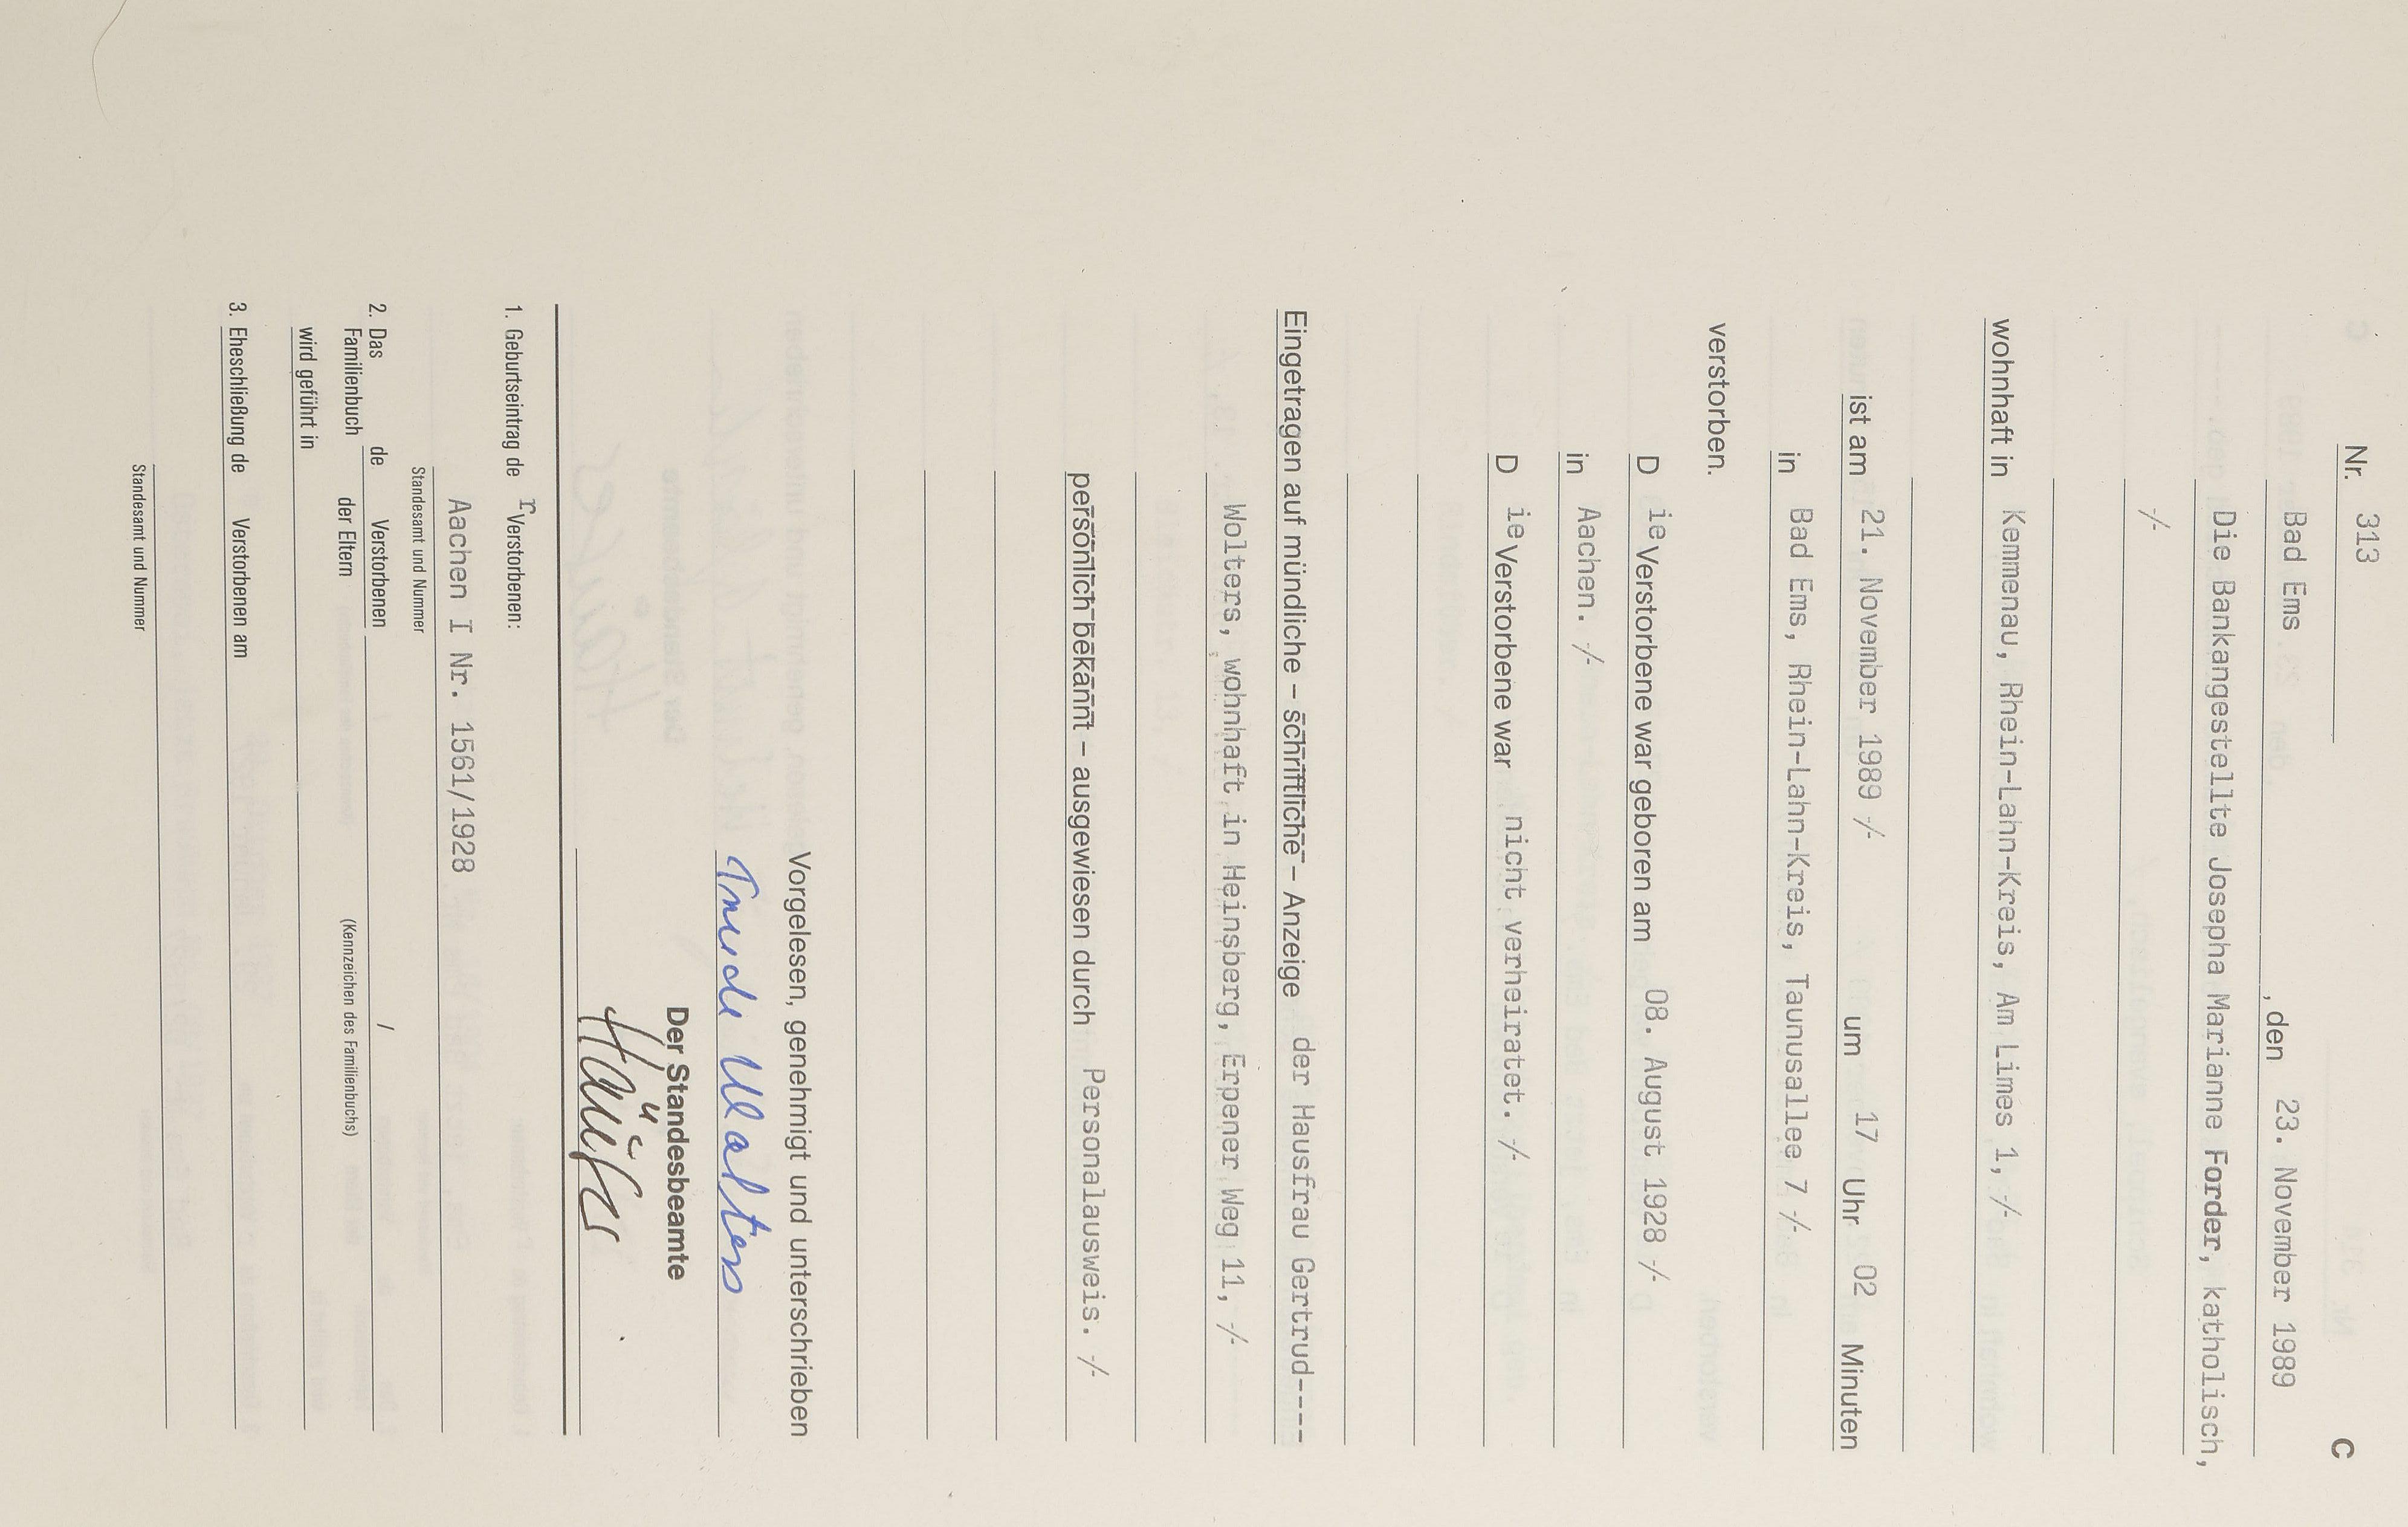 C
Nr. 313
Bad Ems , den 23. November 1989
Die Bankangestellte Josepha Marianne Forder, katholisch,
-/-
wohnhaft in Kemmenau, Rhein-Lahn-Kreis, Am Limes 1, -/-
ist am 21. November 1989 -/- um 17 Uhr 02 Minuten
in Bad Ems, Rhein-Lahn-Kreis, Taunusallee 7 -/-
verstorben.
D ie Verstorbene war geboren am 08. August 1928 -/-
in Aachen. -/-
D ie Verstorbene war nicht verheiratet. -/-
Eingetragen auf mündliche – schriftliche – Anzeige der Hausfrau Gertrud----
Wolters, wohnhaft in Heinsberg, Erpener Weg 11, -/-
persönlich bekannt – ausgewiesen durch Personalausweis. -/-
Vorgelesen, genehmigt und unterschrieben
Trude Wolters
Der Standesbeamte
1. Geburtseintrag de r Verstorbenen:
Aachen I Nr. 1561/1928
Standesamt und Nummer
2. Das Familienbuch de Verstorbenen / der Eltern (Kennzeichen des Familienbuchs)
wird geführt in
3. Eheschließung de Verstorbenen am
Standesamt und Nummer